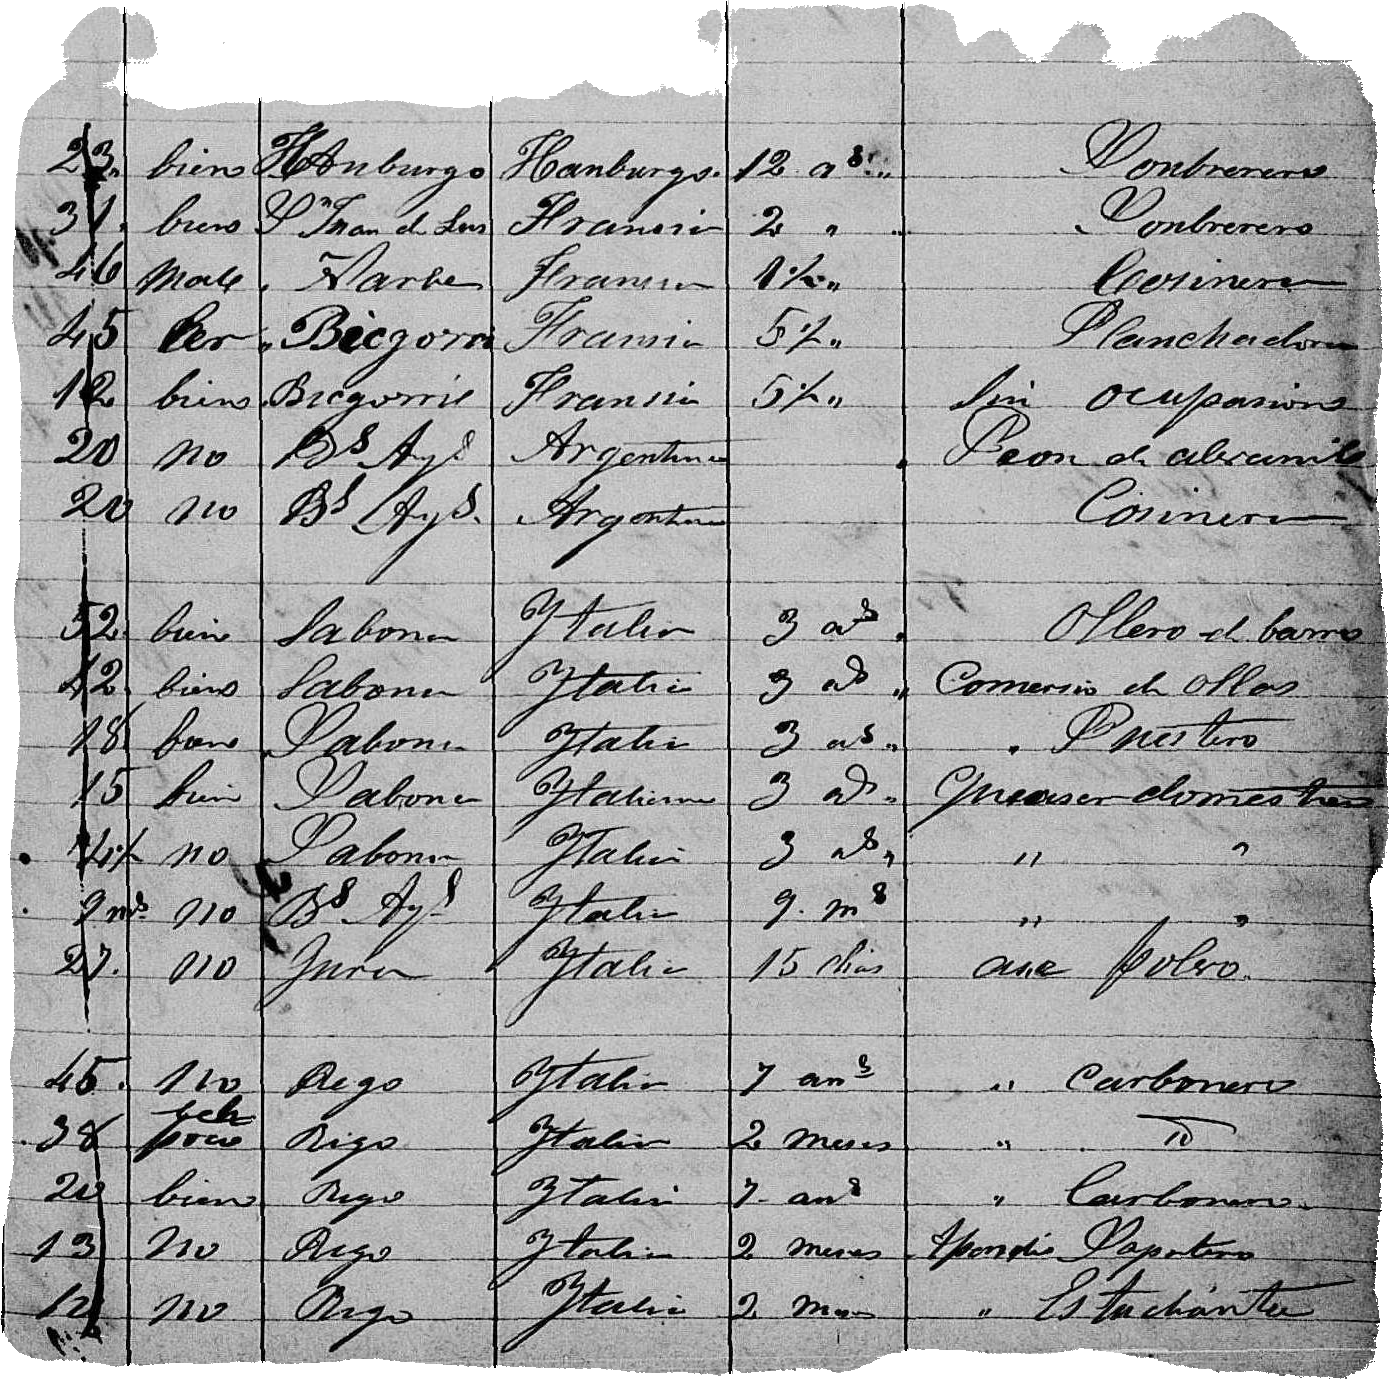 23. bien Hanburgo Hanburgo. 12 aˢ „ Sonbrerero
31. bien Sⁿ Juan de Lus Fransia 2 „ „ Sonbrerero
46 male . Tarbe Fransia 1½ „ Cosinera
45 ler „ Biegorri Fransia 5½ „ Planchadora
12 bien Biegorrie Fransia 5½ „ Sin ocupasion
20 no Bˢ Ayˢ Argentina . Peon de
20 no Bˢ Ayˢ. Argentina Cosinera
52. bien Sabona Ytalia 3 aˢ . Ollero de barro
42. bien Sabona Ytalia 3 aˢ „ Comersio de ollas
18 bien Sabona Ytalia 3 aˢ „ . Puestero
15 bien Sabona Ytaliana 3 aˢ „
4½ no Sabona Ytalia 3 aˢ „ „ „
9 mˢ no Bˢ Ayˢ Ytalia 9. mˢ „ „
27. no Ytalia 15 dias ase
45. no Rego Ytalia 7 anˢ „ Carbonero
38 poco Rigo Ytalia 2 meses „ iD
20 bien Rego Ytalia 7. anˢ „ Carbonero.
13 no Rego Ytalia 2 meses Apondis Sapatero
12 no Rego Ytalia 2 meses „ Estudiante